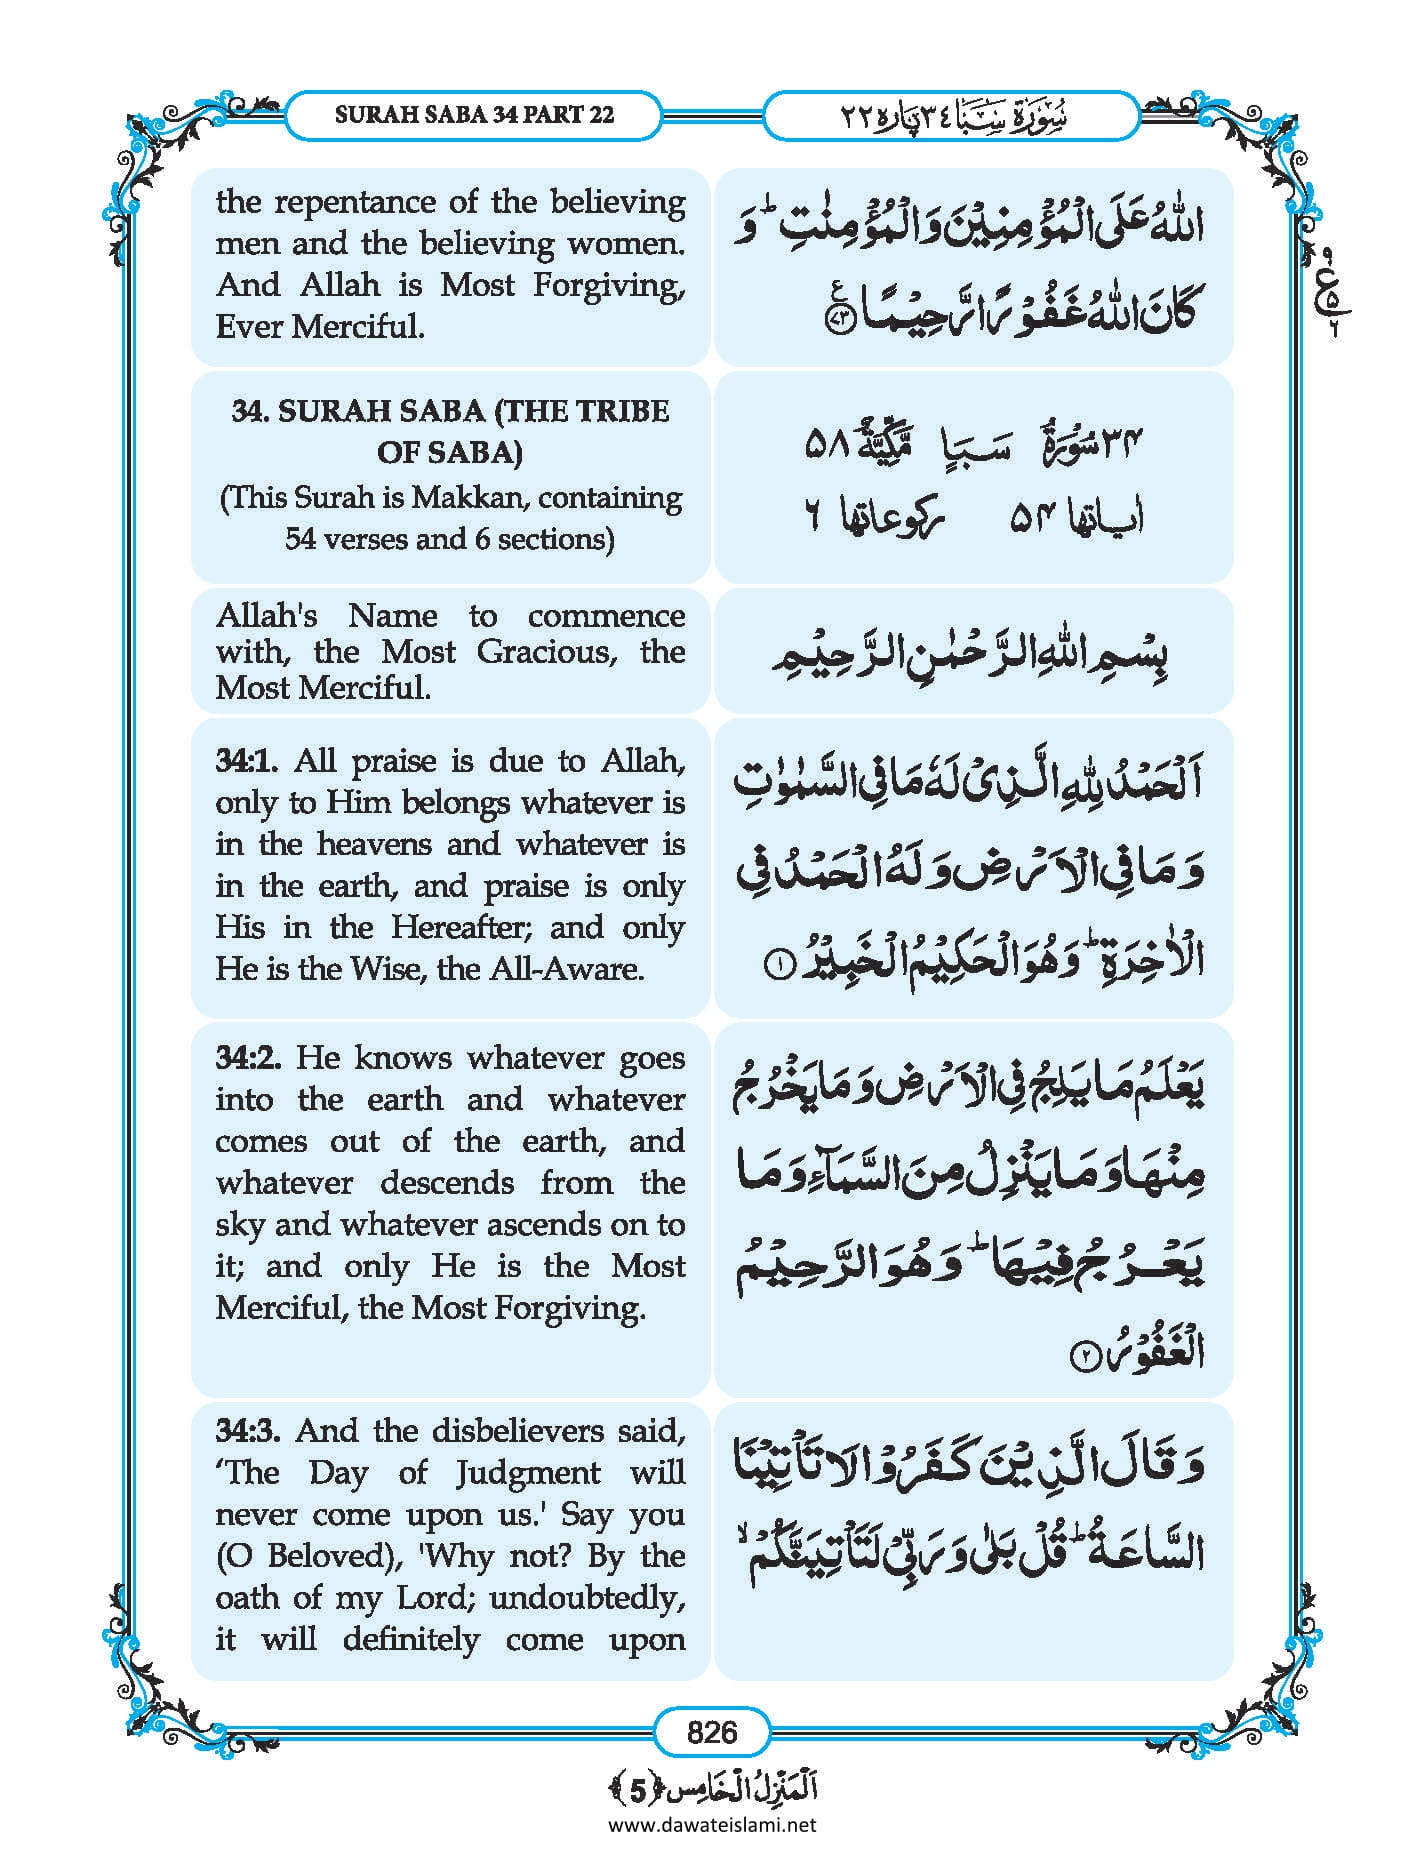 SURAH SABA 34 PART 22
سُوْرَة سَبَا ٣٤ پاره ٢٢
the repentance of the believing
men and the believing women.
And Allah is Most Forgiving,
Ever Merciful.
اللّٰهُ عَلَى الْمُؤْمِنِيْنَ وَالْمُؤْمِنٰتِ ؕ وَ
كَانَ اللّٰهُ غَفُوْرًا رَّحِيْمًا ﴿۷۳﴾ ع
34. SURAH SABA (THE TRIBE
OF SABA)
(This Surah is Makkan, containing
54 verses and 6 sections)
۳۴ سُوْرَةُ سَبَاٍ مَّكِّيَّةٌ ۵۸
اٰياتها ۵۴ ركوعاتها ۶
Allah's Name to commence
with, the Most Gracious, the
Most Merciful.
بِسْمِ اللّٰهِ الرَّحْمٰنِ الرَّحِيْمِ
34:1. All praise is due to Allah,
only to Him belongs whatever is
in the heavens and whatever is
in the earth, and praise is only
His in the Hereafter; and only
He is the Wise, the All-Aware.
اَلْحَمْدُ لِلّٰهِ الَّذِیْ لَهٗ مَا فِی السَّمٰوٰتِ
وَ مَا فِی الْاَرْضِ وَ لَهُ الْحَمْدُ فِی
الْاٰخِرَةِ ؕ وَ هُوَ الْحَكِيْمُ الْخَبِيْرُ ﴿۱﴾
34:2. He knows whatever goes
into the earth and whatever
comes out of the earth, and
whatever descends from the
sky and whatever ascends on to
it; and only He is the Most
Merciful, the Most Forgiving.
يَعْلَمُ مَا يَلِجُ فِی الْاَرْضِ وَ مَا يَخْرُجُ
مِنْهَا وَ مَا يَنْزِلُ مِنَ السَّمَآءِ وَ مَا
يَعْرُجُ فِيْهَا ؕ وَ هُوَ الرَّحِيْمُ
الْغَفُوْرُ ﴿۲﴾
34:3. And the disbelievers said,
‘The Day of Judgment will
never come upon us.' Say you
(O Beloved), 'Why not? By the
oath of my Lord; undoubtedly,
it will definitely come upon
وَ قَالَ الَّذِيْنَ كَفَرُوْا لَا تَاْتِيْنَا
السَّاعَةُ ؕ قُلْ بَلٰی وَ رَبِّیْ لَتَاْتِيَنَّكُمْ ۙ
۹
ع
۵
۶
826
اَلْمَنْزِلُ الْخَامِس ﴿5﴾
www.dawateislami.net